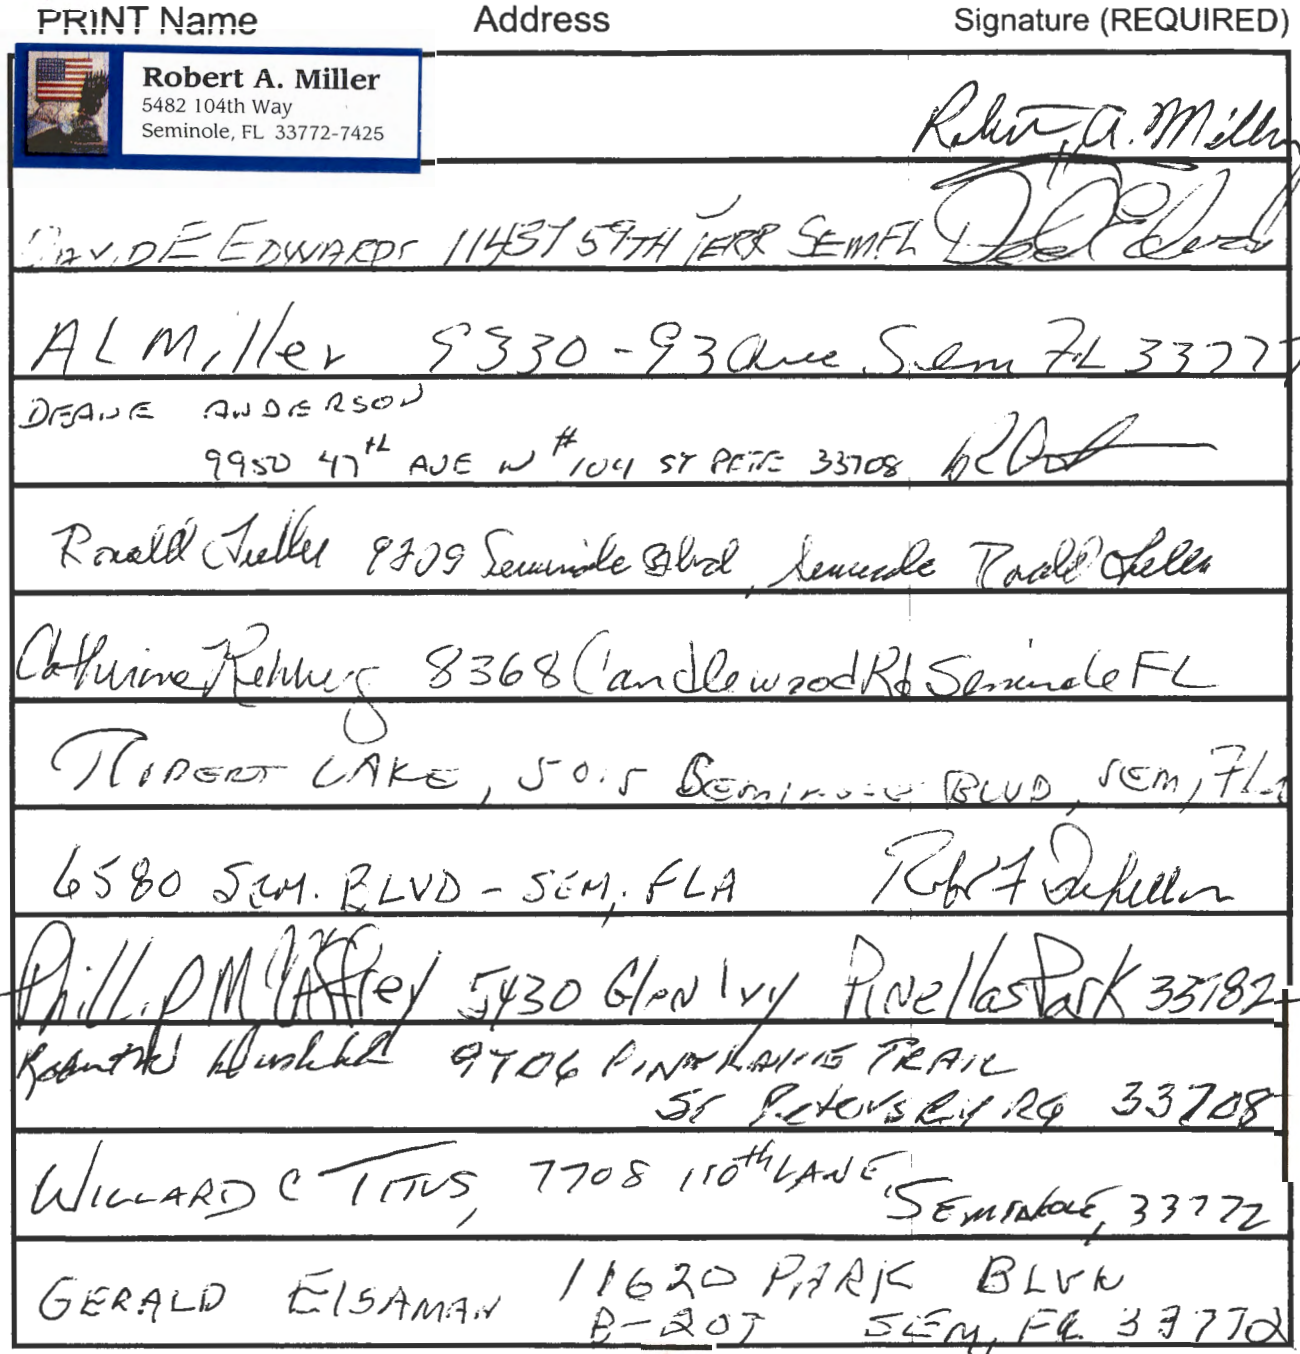 PRINT Name Address Signature (REQUIRED)
Robert A. Miller
5482 104th Way
Seminole, FL 33772-7425
Robert A. Miller
DAVID E EDWARDS 11437 59TH TERR SEM FL
AL Miller 9330-93 Ave. Sem FL 33777
DEANE ANDERSON
9950 47th AVE N #104 ST PETE 33708
Ronald 9209 Seminole Blvd, Seminole Ronald
Catherine Rehberg 8368 Candlewood Rd Seminole FL
ROBERT LAKE, 5015 SEMINOLE BLVD, SEM, FLA
6580 SEM. BLVD - SEM, FLA
Phillip McCaffrey 5430 Glen Ivy Pinellas Park 33782
9706 TRAIL
St 33708
WILLARD C TITUS, 7708 110th LANE,
SEMINOLE, 33772
GERALD EISAMAN 11620 PARK BLVD
B-207 SEM, FL. 33772